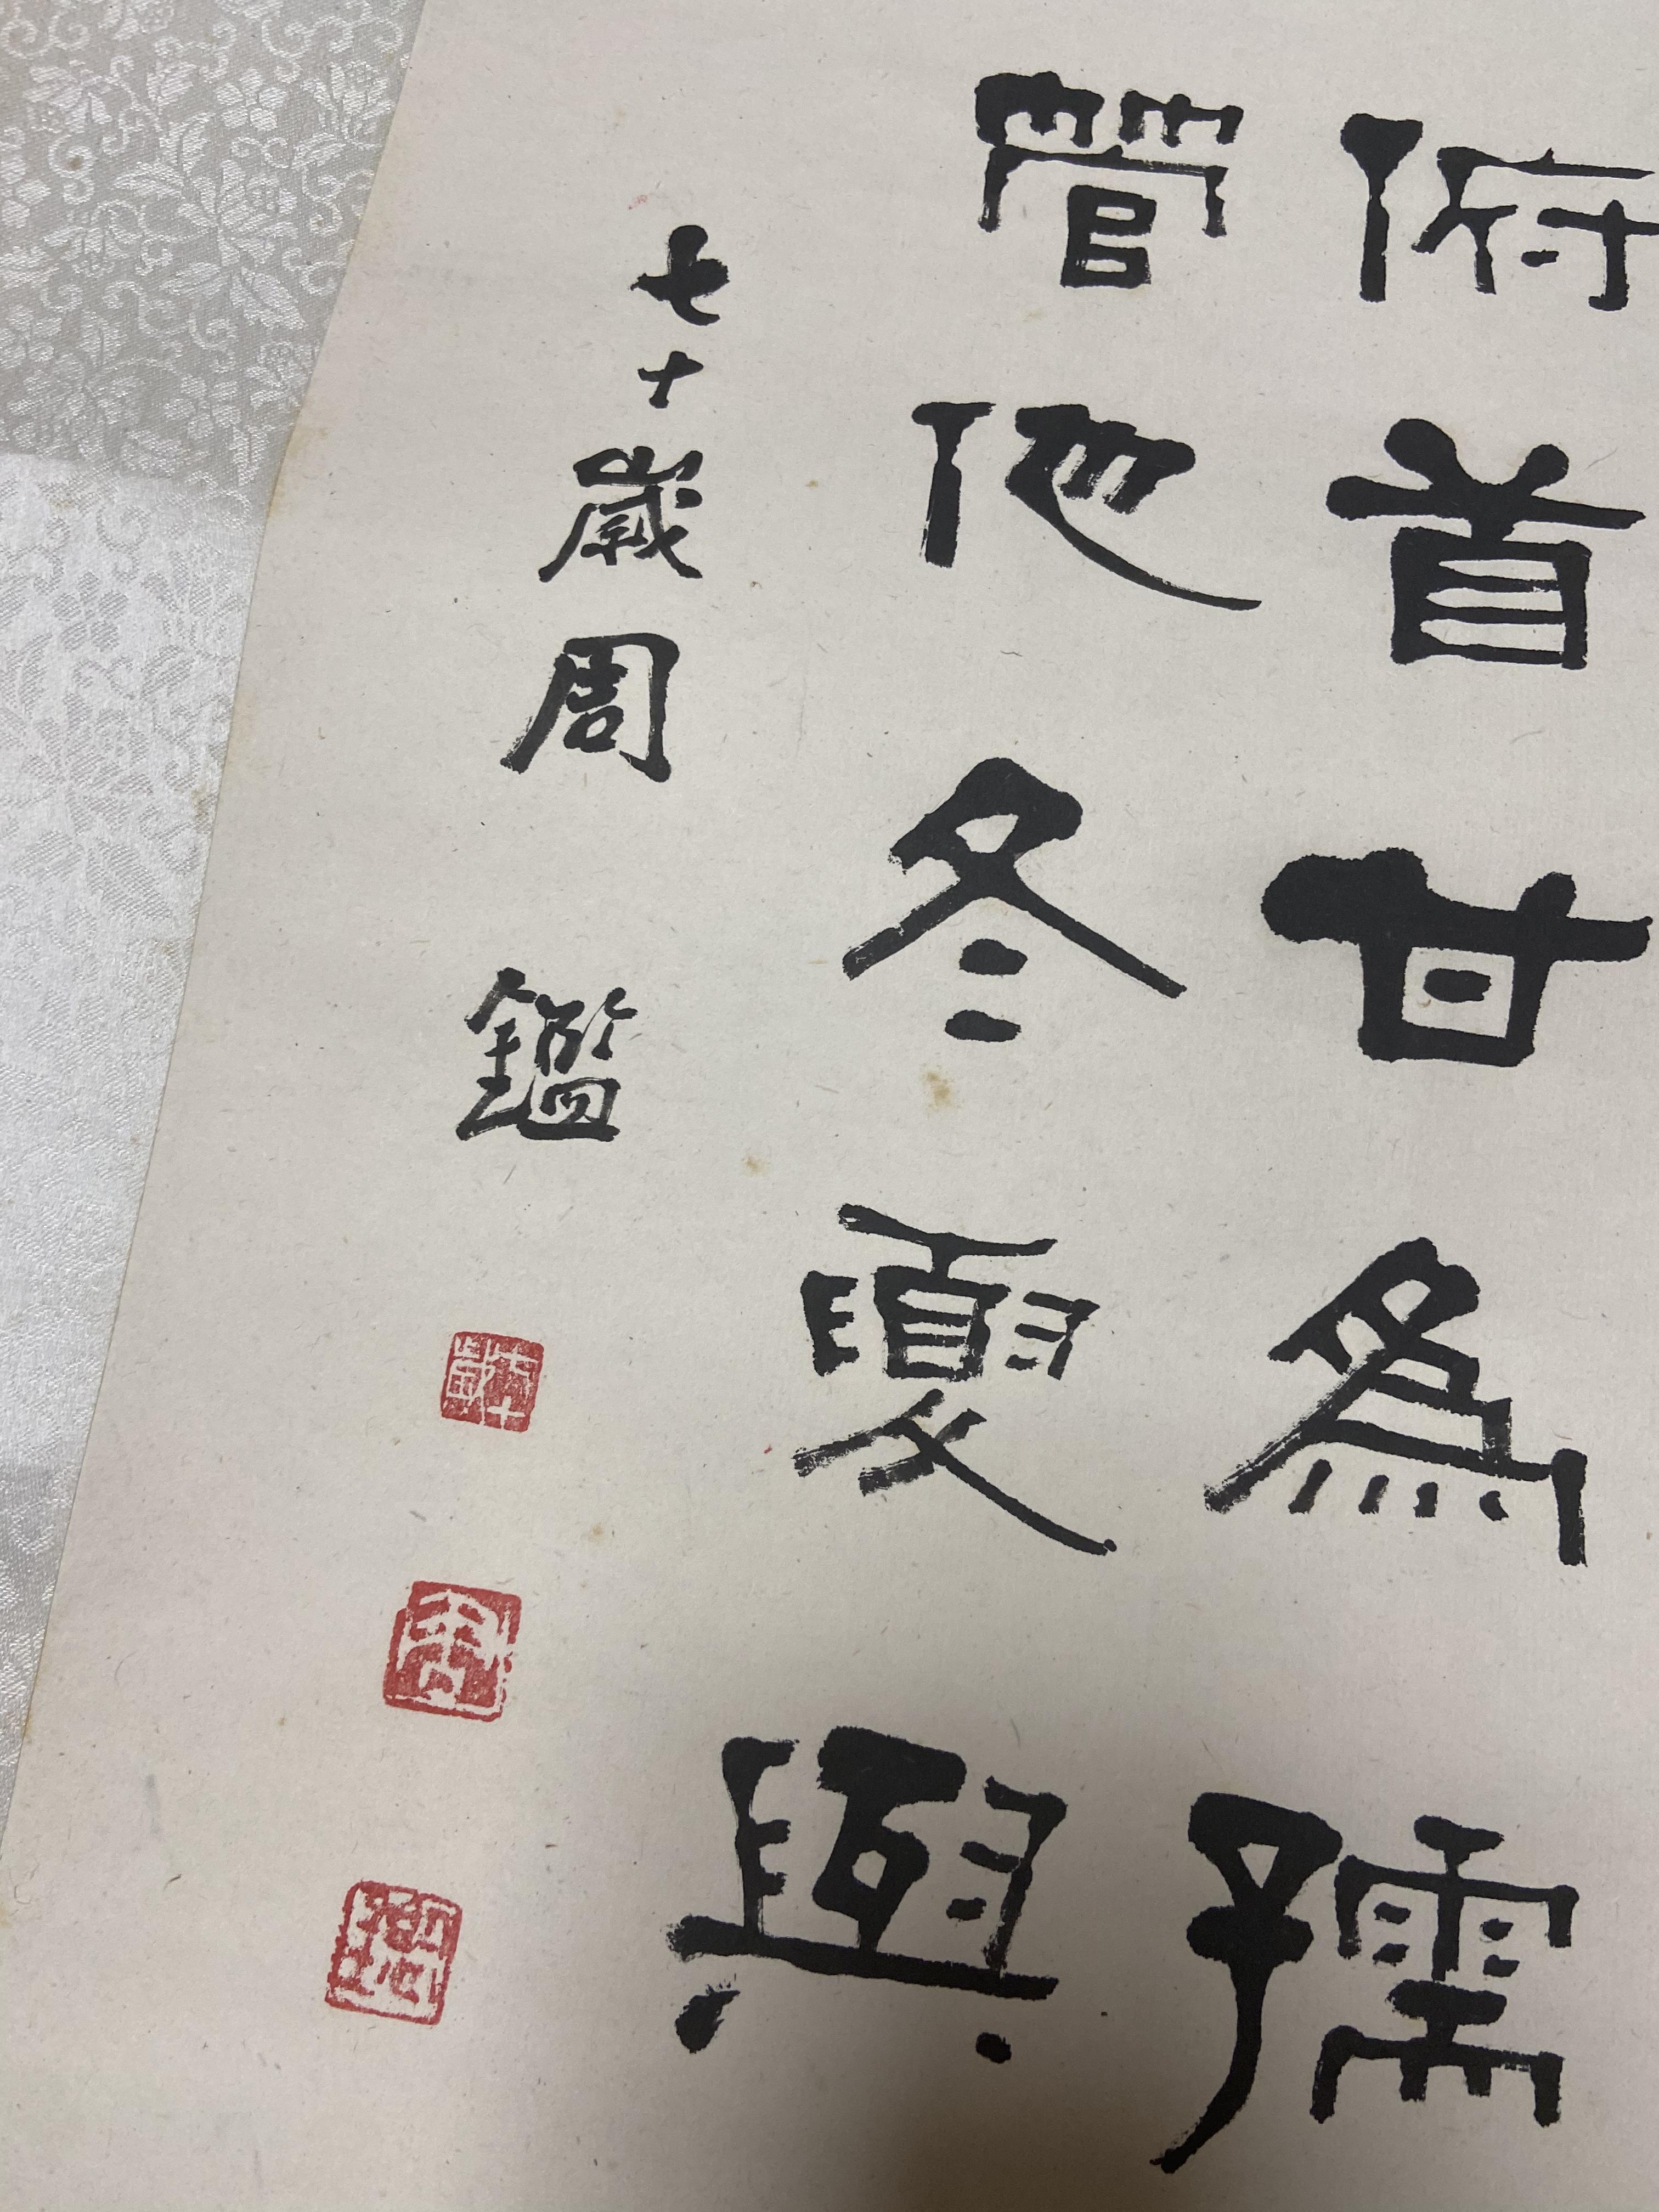 俯首甘為孺
管他冬夏與
七十歲周鑑